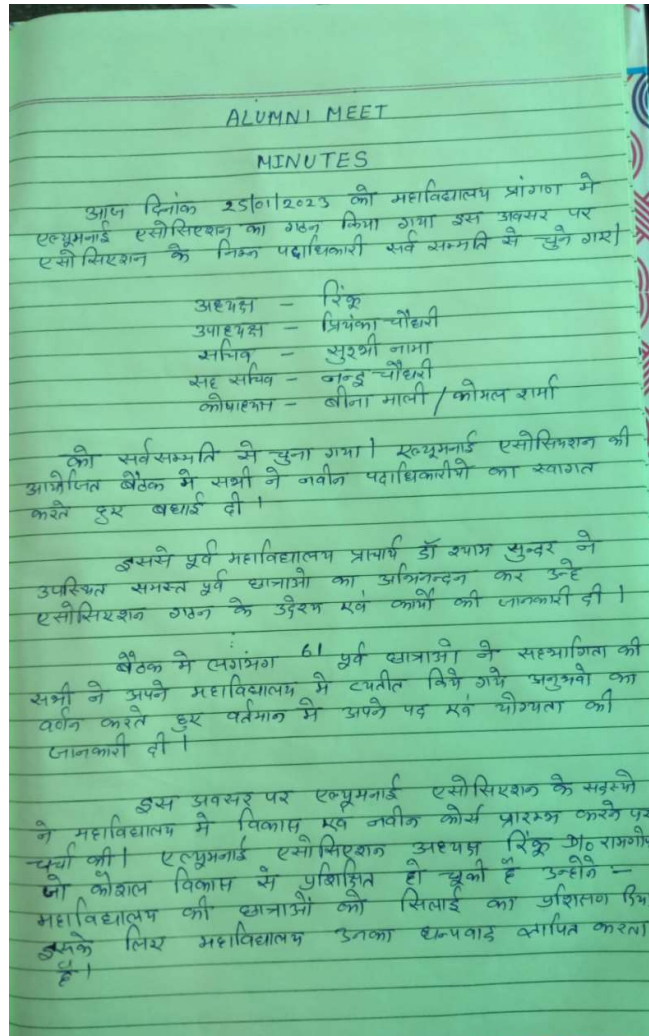 ALUMNI MEET
MINUTES
आज दिनांक 25/01/2023 को महाविद्यालय प्रांगण मे
एल्यूमनाई एसोसिएशन का गठन किया गया इस अवसर पर
एसोसिएशन के निम्न पदाधिकारी सर्व सम्मति से चुने गए।
अध्यक्ष - रिंकू
उपाध्यक्ष - प्रियंका चौधरी
सचिव - सुरभी नामा
सह सचिव - नन्दू चौधरी
कोषाध्यक्ष - बीना माली / कोमल शर्मा
को सर्वसम्मति से चुना गया। एल्यूमनाई एसोसिएशन की
आयोजित बैठक मे सभी ने नवीन पदाधिकारीयो का स्वागत
करते हुए बधाई दी।
इससे पूर्व महाविद्यालय प्राचार्य डॉ श्याम सुन्दर ने
उपस्थित समस्त पूर्व छात्राओ का अभिनन्दन कर उन्हे
एसोसिएशन गठन के उद्देश्य एवं कार्यो की जानकारी दी।
बैठक मे लगभग 61 पूर्व छात्राओ ने सहभागिता की
सभी ने अपने महाविद्यालय मे व्यतीत किये गये अनुभवो का
वर्णन करते हुए वर्तमान मे अपने पद एवं योग्यता की
जानकारी दी।
इस अवसर पर एल्यूमनाई एसोसिएशन के सदस्यो
ने महाविद्यालय मे विकास एवं नवीन कोर्स प्रारम्भ करने पर
चर्चा की। एल्यूमनाई एसोसिएशन अध्यक्ष रिंकू D/o रामगो
जो कौशल विकास से प्रशिक्षित हो चूकी है उन्होने -
महाविद्यालय की छात्राओं को सिलाई का प्रशिक्षण दिय
इसके लिए महाविद्यालय उनका धन्यवाद ज्ञापित करता
है।